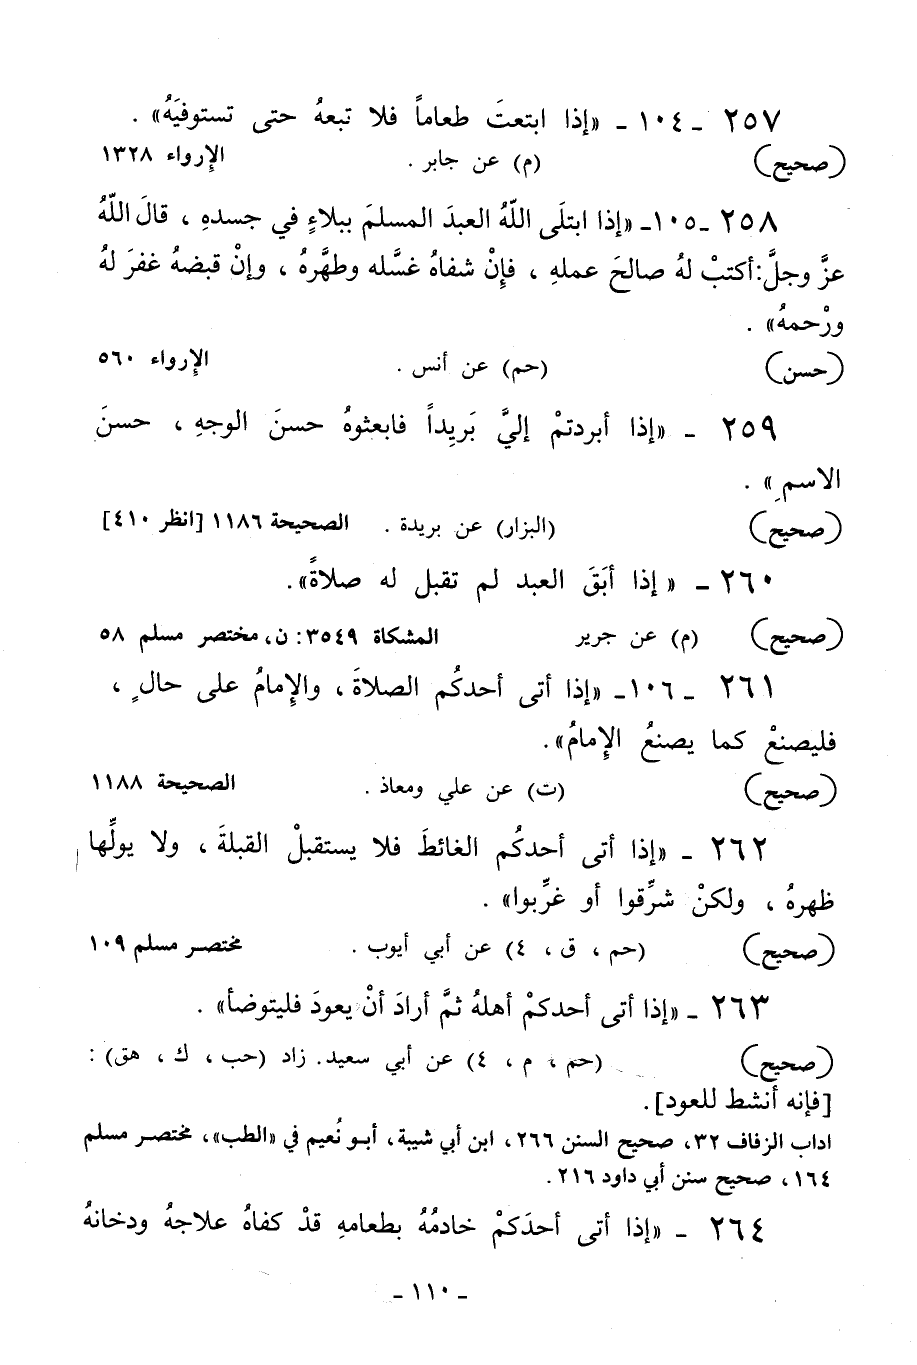 ٢٥٧ ـ ١٠٤ ـ «إذا ابتعتَ طعاماً فلا تبعهُ حتى تستوفيَهُ» .
(صحيح) (م) عن جابر . الإرواء ١٣٢٨
٢٥٨ ـ ١٠٥ـ «إذا ابتلَى اللّهُ العبدَ المسلمَ ببلاءٍ في جسدهِ ، قالَ اللّهُ
عزَّ وجلَّ:أكتبْ لهُ صالحَ عملهِ ، فإِنْ شفاهُ غسَّله وطهَّرهُ ، وإنْ قبضهُ غفرَ لهُ
ورْحمهُ» .
(حسن) (حم) عن أنس . الإرواء ٥٦٠
٢٥٩ ـ «إذا أبردتمْ إليَّ بَرِيداً فابعثوهُ حسنَ الوجهِ ، حسنَ
الاسمِ» .
(صحيح) (البزار) عن بريدة . الصحيحة ١١٨٦ [انظر ٤١٠]
٢٦٠ ـ « إذا أبَقَ العبد لم تقبل له صلاةً».
(صحيح) (م) عن جرير المشكاة ٣٥٤٩: ن، مختصر مسلم ٥٨
٢٦١ ـ ١٠٦ـ «إذا أتى أحدكُم الصلاةَ ، والإِمامُ على حالٍ ،
فليصنعْ كما يصنعُ الإِمامُ».
(صحيح) (ت) عن علي ومعاذ . الصحيحة ١١٨٨
٢٦٢ ـ «إذا أتى أحدكُم الغائطَ فلا يستقبلْ القبلةَ ، ولا يولِّها
ظهرهُ ، ولكنْ شرِّقوا أو غرِّبوا» .
(صحيح) (حم ، ق ، ٤) عن أبي أيوب . مختصر مسلم ١٠٩
٢٦٣ ـ «إذا أتى أحدكمْ أهلهُ ثمَّ أرادَ أنْ يعودَ فليتوضأ» .
(صحيح) (حم ، م ، ٤) عن أبي سعيد. زاد (حب ، ك ، هق) :
[فإنه أنشط للعود].
اداب الزفاف ٣٢، صحيح السنن ٢٦٦، ابن أبي شيبة، أبو نُعيم في «الطب»، مختصر مسلم
١٦٤، صحيح سنن أبي داود ٢١٦.
٢٦٤ ـ «إذا أتى أحدَكمْ خادمُهُ بطعامهِ قدْ كفاهُ علاجهُ ودخانهُ
ـ ١١٠ ـ